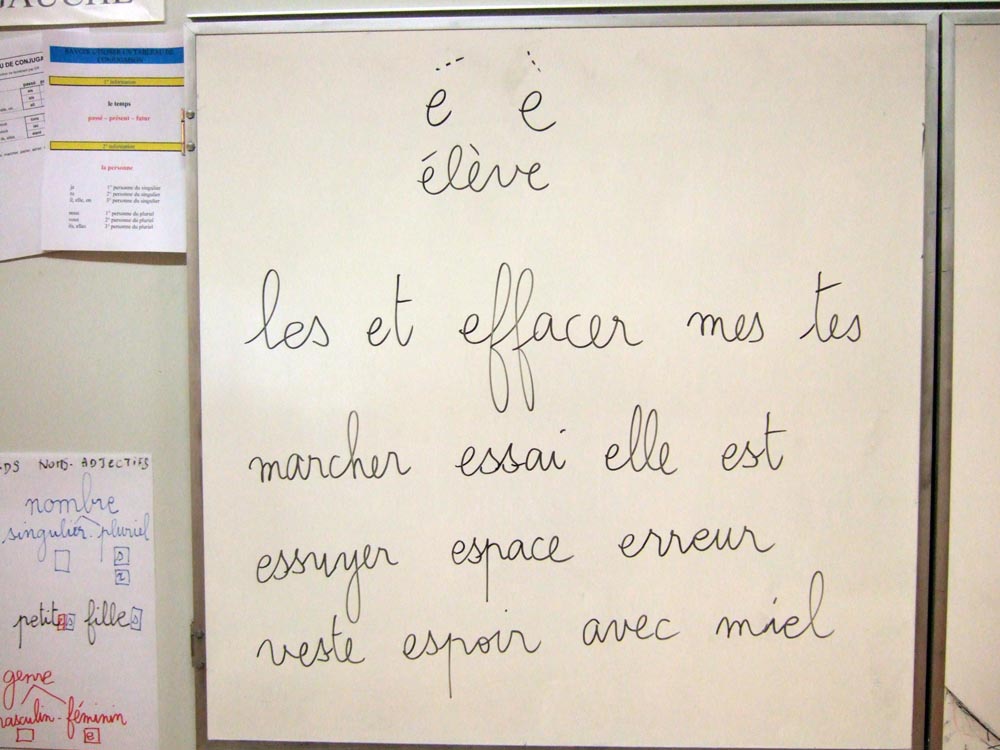 GAUCHE
SAVOIR UTILISER UN TABLEAU DE
CONJUGAISON
1° information
le temps
passé - présent - futur
2° information
la personne
je 1° personne du singulier
tu 2° personne du singulier
il, elle, on 3° personne du singulier
nous 1° personne du pluriel
vous 2° personne du pluriel
ils, elles 3° personne du pluriel
é è
élève
les et effacer mes tes
marcher essai elle est
essuyer espace erreur
veste espoir avec miel
NOMS - ADJECTIFS
nombre
singulier - pluriel
s
x
petites filles
genre
masculin - féminin
e